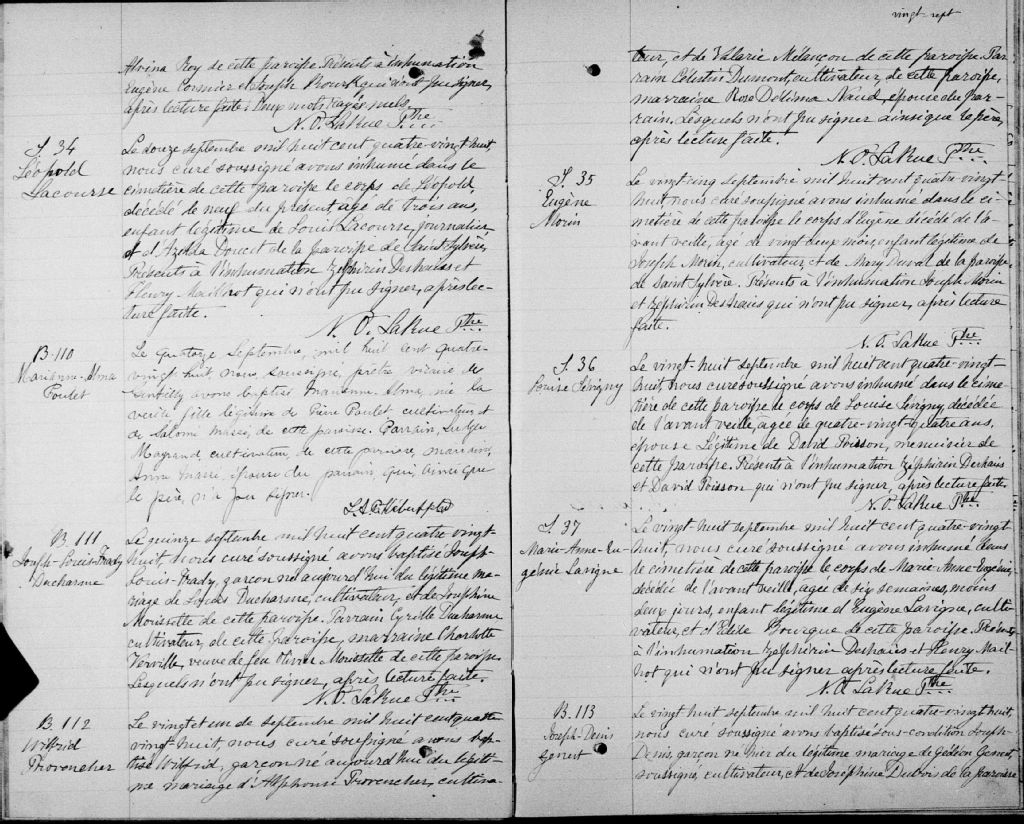 Alvina Roy de cette paroisse. Présents à l'inhumation
Eugène Cormier et Joseph Bourk qui n'ont pu signer,
après lecture faite. Deux mots rayés nuls.
N. O. LaRue Ptre
S 34
Léopold
Lacourse
Le douze septembre mil huit cent quatre-vingt huit
nous curé soussigné avons inhumé dans le
cimetière de cette paroisse le corps de Léopold,
décédé le neuf du présent, agé de trois ans,
enfant légitime de Louis Lacourse, journalier
et d'Azilda Doucet de la paroisse de Saint Sylvère,
Présents à l'inhumation Zéphirin Deshaies et
Fleury Mailhot qui n'ont pu signer, après lec-
ture faite.
N. O. LaRue Ptre
B. 110
Marianne-Alma
Poulet
Le quatorze Septembre, mil huit cent quatre-
vingt huit, nous, soussigné, prêtre vicaire de
Gentilly avons baptisé Marianne Alma, née la
veille fille légitime de Pierre Paulet cultivateur et
de Salomé Massé, de cette paroisse. Parrain,
Magrand, cultivateur, de cette paroisse, marraine,
Anna Massé épouse du parrain qui, ainsi que
le père, n'a pu signer.
B. 111
Joseph-Louis-Frady
Ducharme
Le quinze septembre mil huit cent quatre vingt-
huit, nous curé soussigné avons baptisé Joseph-
Louis-Frady, garçon né aujourd'hui du légitime ma-
riage de Louis Ducharme, cultivateur, et de Josephine
Morissette de cette paroisse. Parrain Cyrille Ducharme
cultivateur, de cette paroisse, marraine Charlotte
Verville, veuve de feu Olivier Morissette de cette paroisse,
Lesquels n'ont pu signer, après lecture faite.
N. O. LaRue Ptre
B. 112
Wilfrid
Provencher
Le vingt et un de septembre mil huit cent quatre
vingt-huit, nous curé soussigné avons bap-
tisé Wilfrid, garçon né aujourd'hui du légiti-
me mariage d'Alphonse Provencher, cultiva-
vingt-sept
teur, et de Valerie Mélançon de cette paroisse. Par-
rain Celestin Dumont, cultivateur, de cette paroisse,
marraine Rose Delima Naud, épouse du par-
rain. Lesquels n'ont pu signer ainsi que le père,
après lecture faite.
N. O. LaRue Ptre
S. 35
Eugène
Morin
Le vingt cinq septembre mil huit cent quatre-vingt-
huit, nous curé soussigné avons inhumé dans le ci-
metière de cette paroisse le corps d'Eugène décédé de l'a-
vant veille, agé de vingt deux mois, enfant légitime de
Joseph Morin, cultivateur, et de Mary Duval de la paroisse
de Saint Sylvère. Présents à l'inhumation Joseph Morin
et Zéphirin Deshaies qui n'ont pu signer, après lecture
faite.
N. O. LaRue Ptre
S. 36
Louise Levigny
Le vingt-huit septembre mil huit cent quatre-vingt-
huit, nous curé soussigné avons inhumé dans le cime-
tière de cette paroisse le corps de Louise Levigny, décédée
de l'avant veille, agée de quatre-vingt-quatre ans,
épouse Légitime de David Poisson, menuisier de
cette paroisse. Présents à l'inhumation Zéphirin Deshaies
et David Poisson qui n'ont pu signer, après lecture faite.
N. O. LaRue Ptre
S 37
Marie-Anne-Eu-
génie Lavigne
Le vingt huit septembre mil huit cent quatre-vingt-
huit, nous curé soussigné avons inhumé dans
le cimetière de cette paroisse le corps de Marie-Anne-Eugénie,
décédée de l'avant veille, agée de six semaines, moins
deux jours, enfant légitime d'Eugène Lavigne, culti-
vateur, et d'Edile Bourque de cette paroisse. Présents
à l'inhumation Zéphirin Deshaies et Fleury Mail-
hot qui n'ont pu signer après lecture faite.
N. O. LaRue Ptre
B. 113
Joseph-Denis
Genest
Le vingt huit septembre mil huit cent quatre-vingt huit,
nous curé soussigné avons baptisé sous-condition Joseph
Denis, garçon né hier du légitime mariage de Gédéon Genest,
soussigné, cultivateur, et de Joséphine Dubois de la paroisse